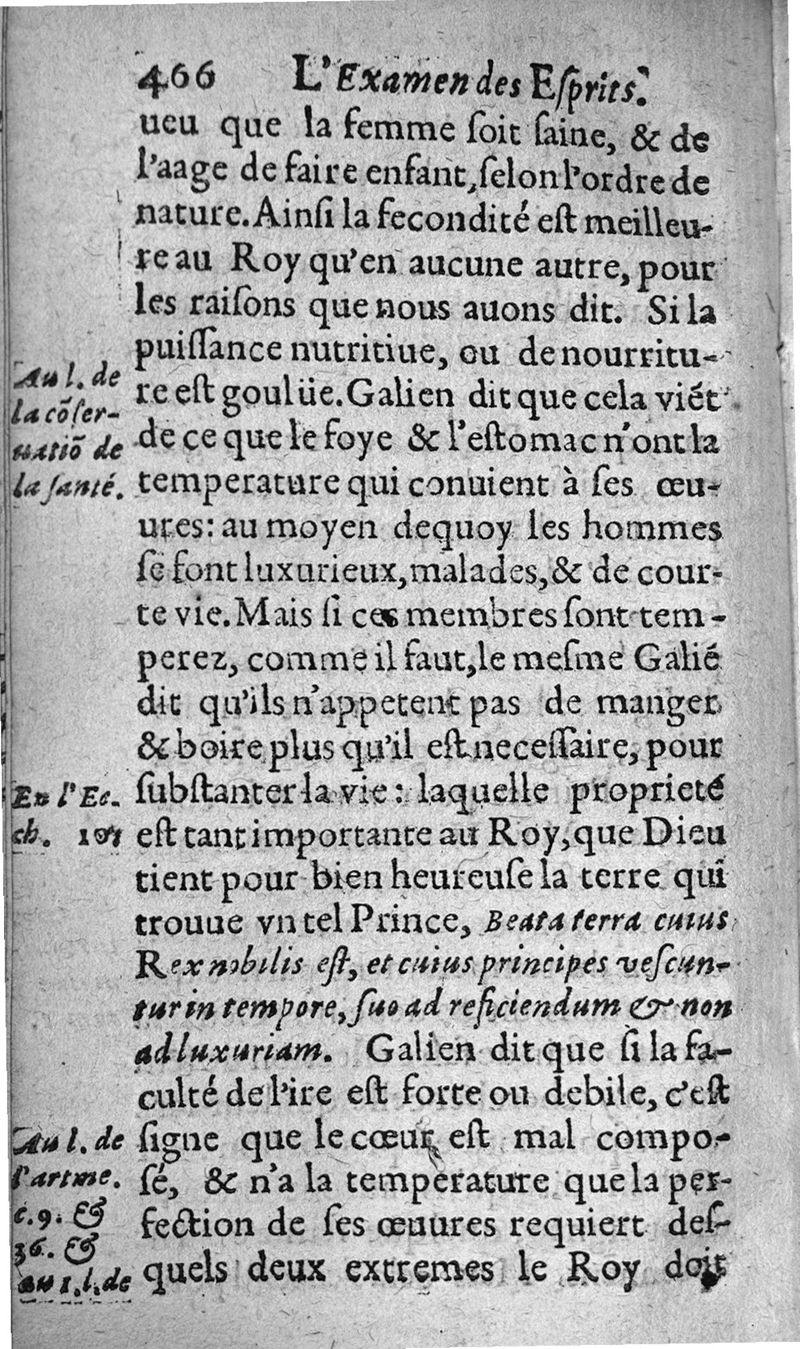 466 L'Examen des Eſprits.
ueu que la femme ſoit ſaine, & de
l'aage de faire enfant, ſelon l'ordre de
nature. Ainſi la fecondité eſt meilleu-
re au Roy qu'en aucune autre, pour
les raiſons que nous auons dit. Si la
puiſſance nutritiue, ou de nourritu-
re eſt goulüe. Galien dit que cela viét
de ce que le foye & l'eſtomac n'ont la
temperature qui conuient à ſes œu-
ures: au moyen dequoy les hommes
ſe font luxurieux, malades, & de cour-
te vie. Mais ſi ces membres ſont tem-
perez, comme il faut, le meſme Galié
dit qu'ils n'appetent pas de manger
& boire plus qu'il eſt neceſſaire, pour
ſubſtanter la vie: laquelle proprieté
eſt tant importante au Roy, que Dieu
tient pour bien heureuſe la terre qui
trouue vn tel Prince, Beata terra cuius
Rex nobilis eſt, et cuius principes veſcun-
tur in tempore, ſuo ad reficiendum & non
ad luxuriam. Galien dit que ſi la fa-
culté de l'ire eſt forte ou debile, c'eſt
ſigne que le cœur eſt mal compo-
ſé, & n'a la temperature que la per-
fection de ſes œuures requiert deſ-
quels deux extremes le Roy doit
Au l. de
la cõſer-
uatiõ de
la ſanté.
En l'Ec.
ch.
Au l. de
l'artme.
c. 9. &
36. &
au 1. l. de